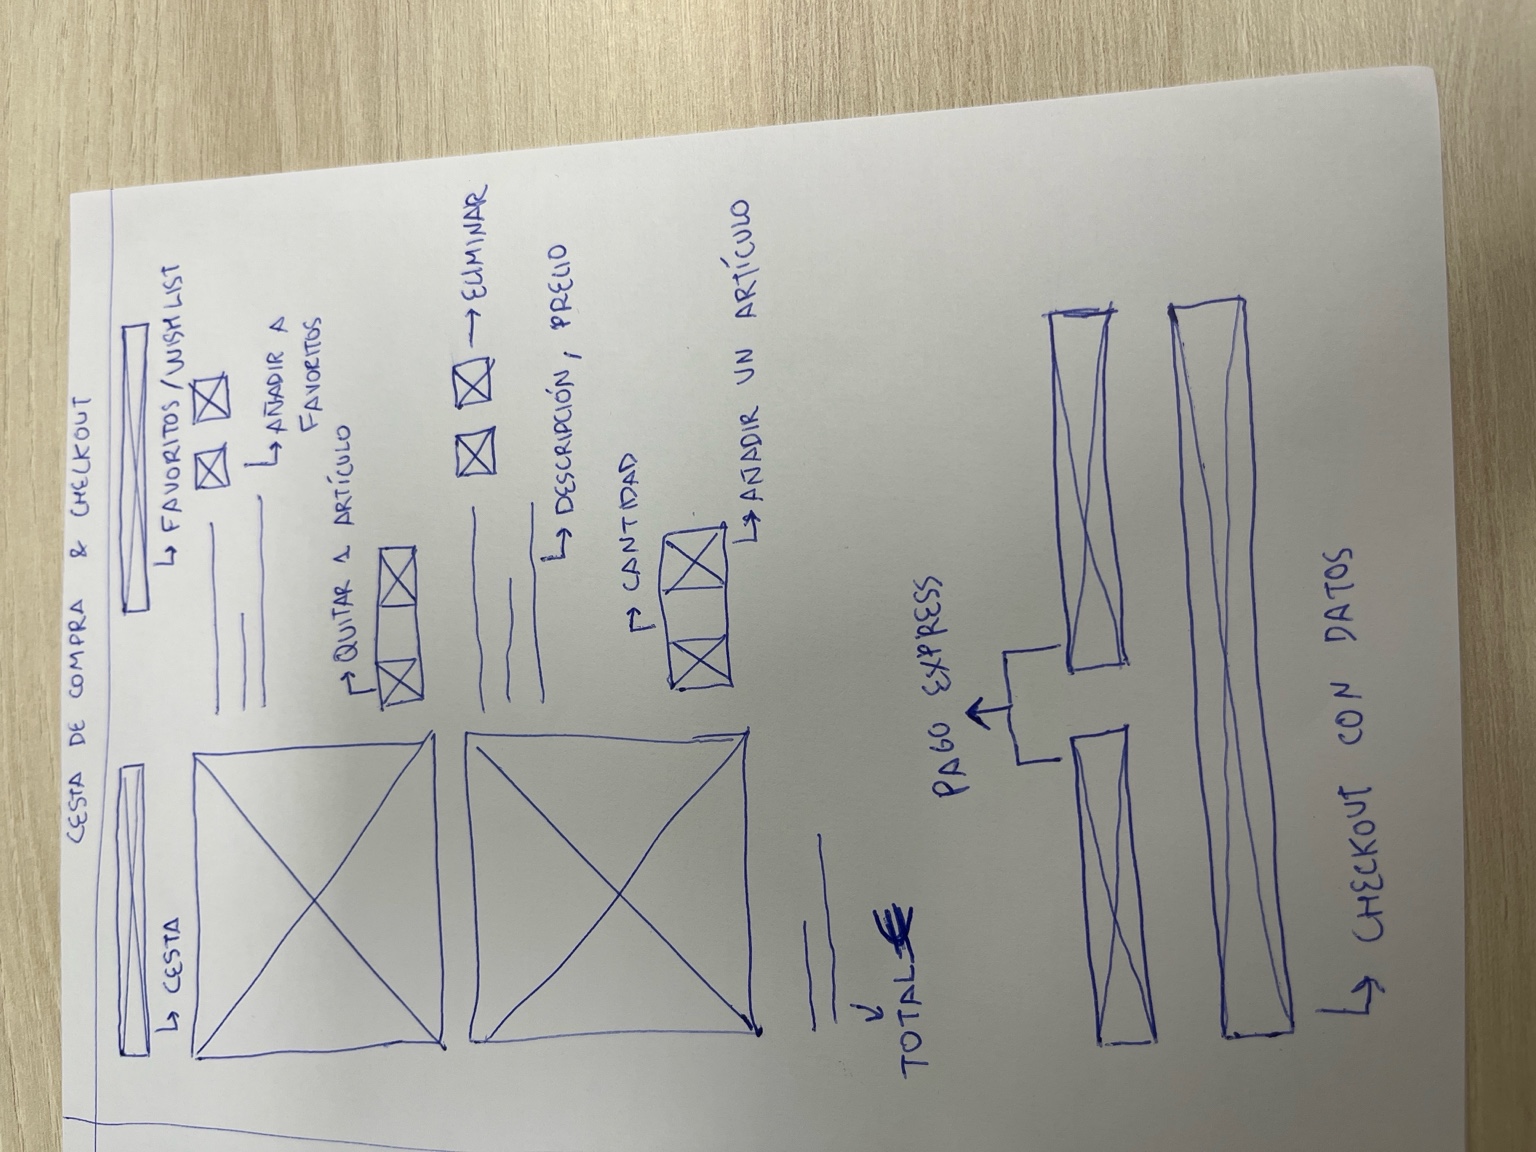 CESTA DE COMPRA & CHECKOUT
CESTA
FAVORITOS/WISHLIST
AÑADIR A
FAVORITOS
QUITAR 1 ARTÍCULO
ELIMINAR
DESCRIPCIÓN, PRECIO
CANTIDAD
AÑADIR UN ARTÍCULO
TOTAL €
PAGO EXPRESS
CHECKOUT CON DATOS